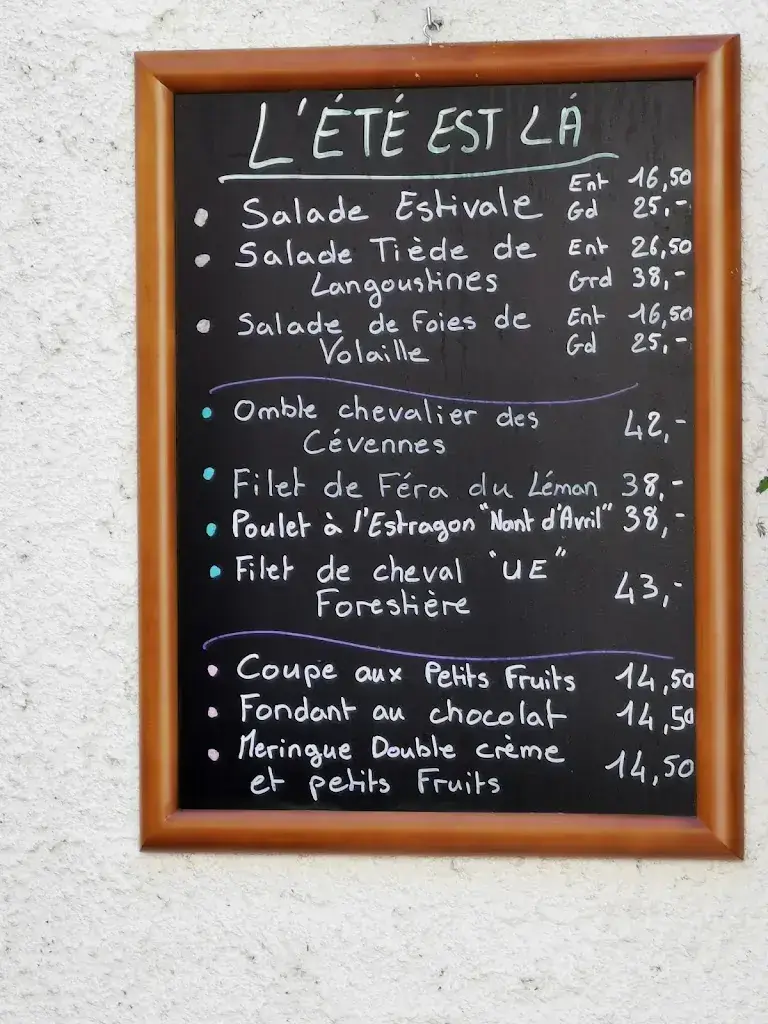 L'ÉTÉ EST LÀ
• Salade Estivale Ent 16,50
Gd 25,-
• Salade Tiède de Ent 26,50
Langoustines Grd 38,-
• Salade de Foies de Ent 16,50
Volaille Gd 25,-
• Omble chevalier des 42,-
Cévennes
• Filet de Féra du Léman 38,-
• Poulet à l'Estragon "Nant d'Avril" 38,-
• Filet de cheval "UE"
Forestière 43,-
• Coupe aux Petits Fruits 14,50
• Fondant au chocolat 14,50
• Meringue Double crème 14,50
et petits Fruits